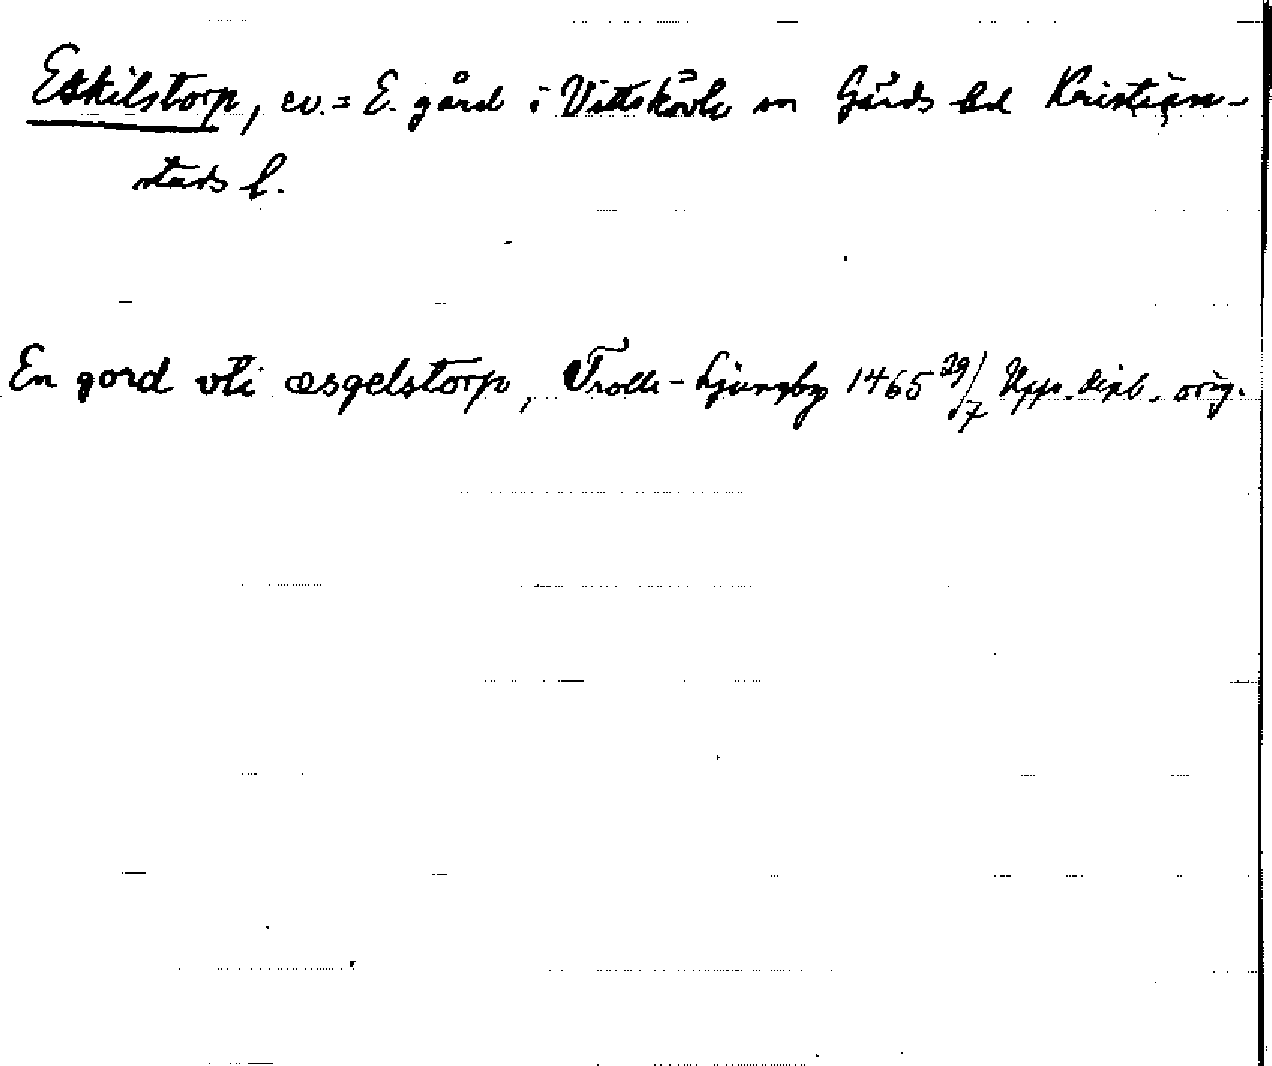 Eskilstorp, ev. = E. gård i Vittskövle sn Gärds hd Kristian-
stads l.
En gord vti æsgelstorp, Trolle-Ljungby 1465 29/7 Upps. dipl. orig.